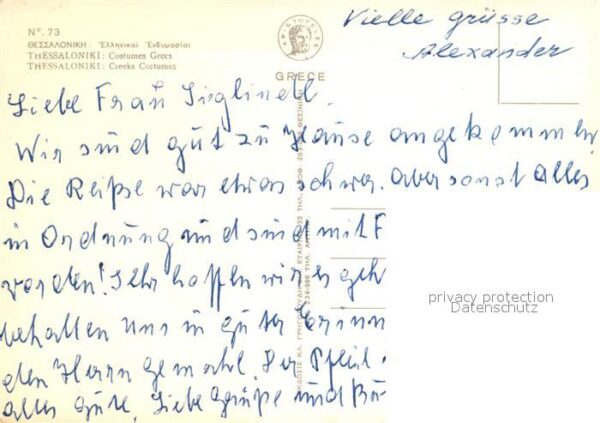 Nº. 73
ΘΕΣΣΑΛΟΝΙΚΗ: Ἑλληνικαί Ἐνδυμασίαι
THESSALONIKI: Costumes Grecs
THESSALONIKI: Greeks Costumes
GRECE
Vielle grüsse
Alexander
Liebe Frau
Wir sind gut zu Hause angekommen.
Die Reiße war etwas schwer. aber sonst alles
in Ordnung und sind mit F
worden! Sehr hoffen wir es geh
behalten uns in guter Erinn
den Herrn gemahl. Der
alles gute, Liebe Grüße und
privacy protection
Datenschutz